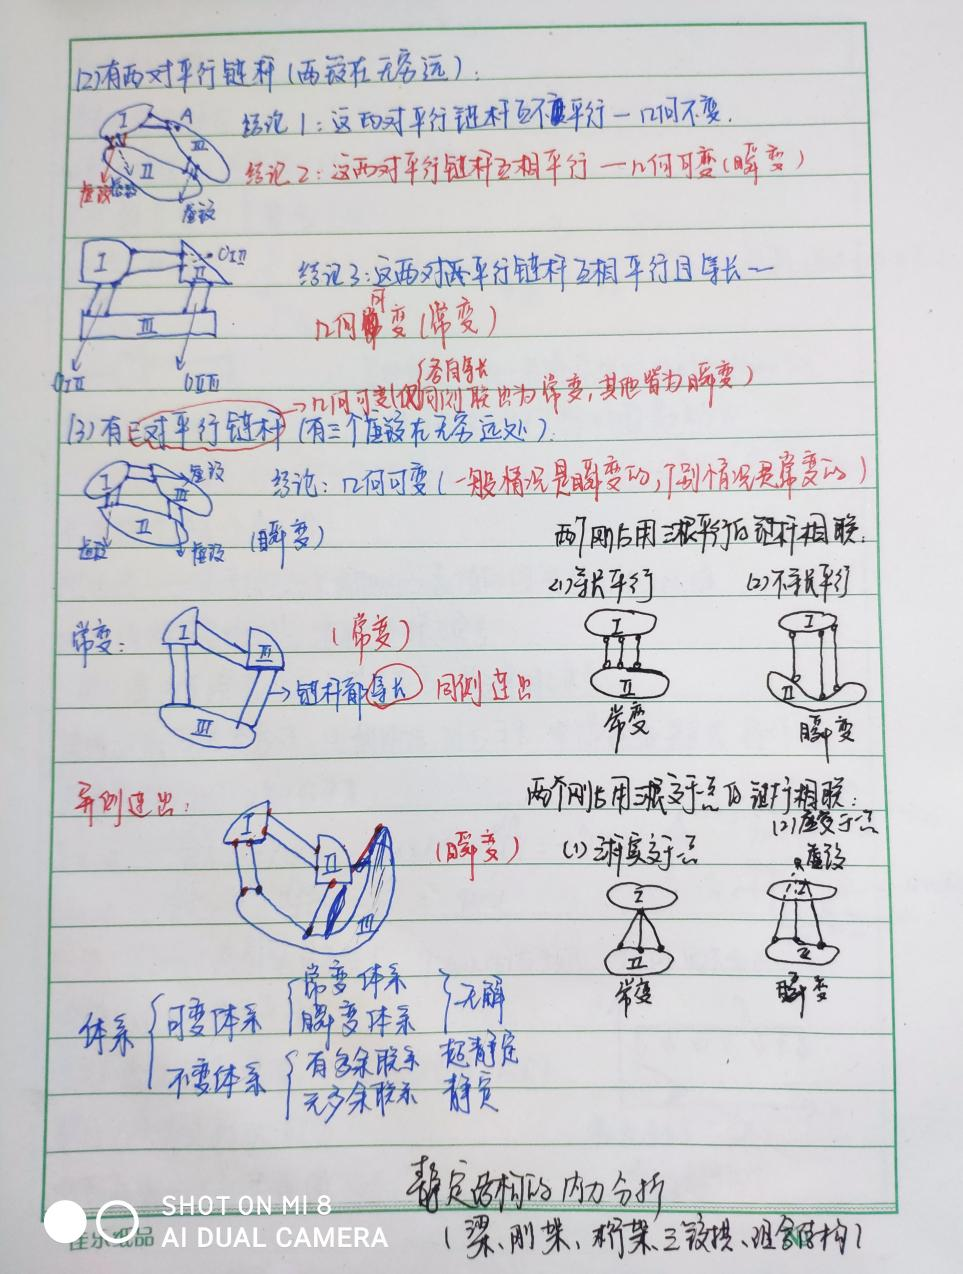 (2)有两对平行链杆(两铰在无穷远):
I A
II III
结论1:这两对平行链杆互不平行—几何不变.
结论2:这两对平行链杆互相平行—几何可变(瞬变)
虚铰 虚铰
虚铰
I II OIII
III
OIII OIIIII
结论3:这两对两平行链杆互相平行且等长—
几何可变(常变)
各自等长
→几何可变(仅同侧联出为常变,其他皆为瞬变)
(3)有三对平行链杆(有三个虚铰在无穷远处):
I 虚铰
III
II
虚铰 虚铰
结论:几何可变(一般情况是瞬变的,个别情况是常变的)
(瞬变)
两个刚片用三根平行的链杆相联:
(1)等长平行 (2)不等长平行
I I
II II
常变 瞬变
常变:
I III
III
(常变)
→链杆都等长 同侧连出
异侧连出:
I II
III
(瞬变)
两个刚片用三根交于一点的链杆相联:
(1)三杆实交于一点
(2)虚交于一点
虚铰
I I
II II
常变 瞬变
体系 可变体系 常变体系 无解
瞬变体系
不变体系 有多余联系 超静定
无多余联系 静定
静定结构的内力分析
(梁、刚架、桁架、三铰拱、组合结构)
SHOT ON MI 8
AI DUAL CAMERA
佳乐纸品